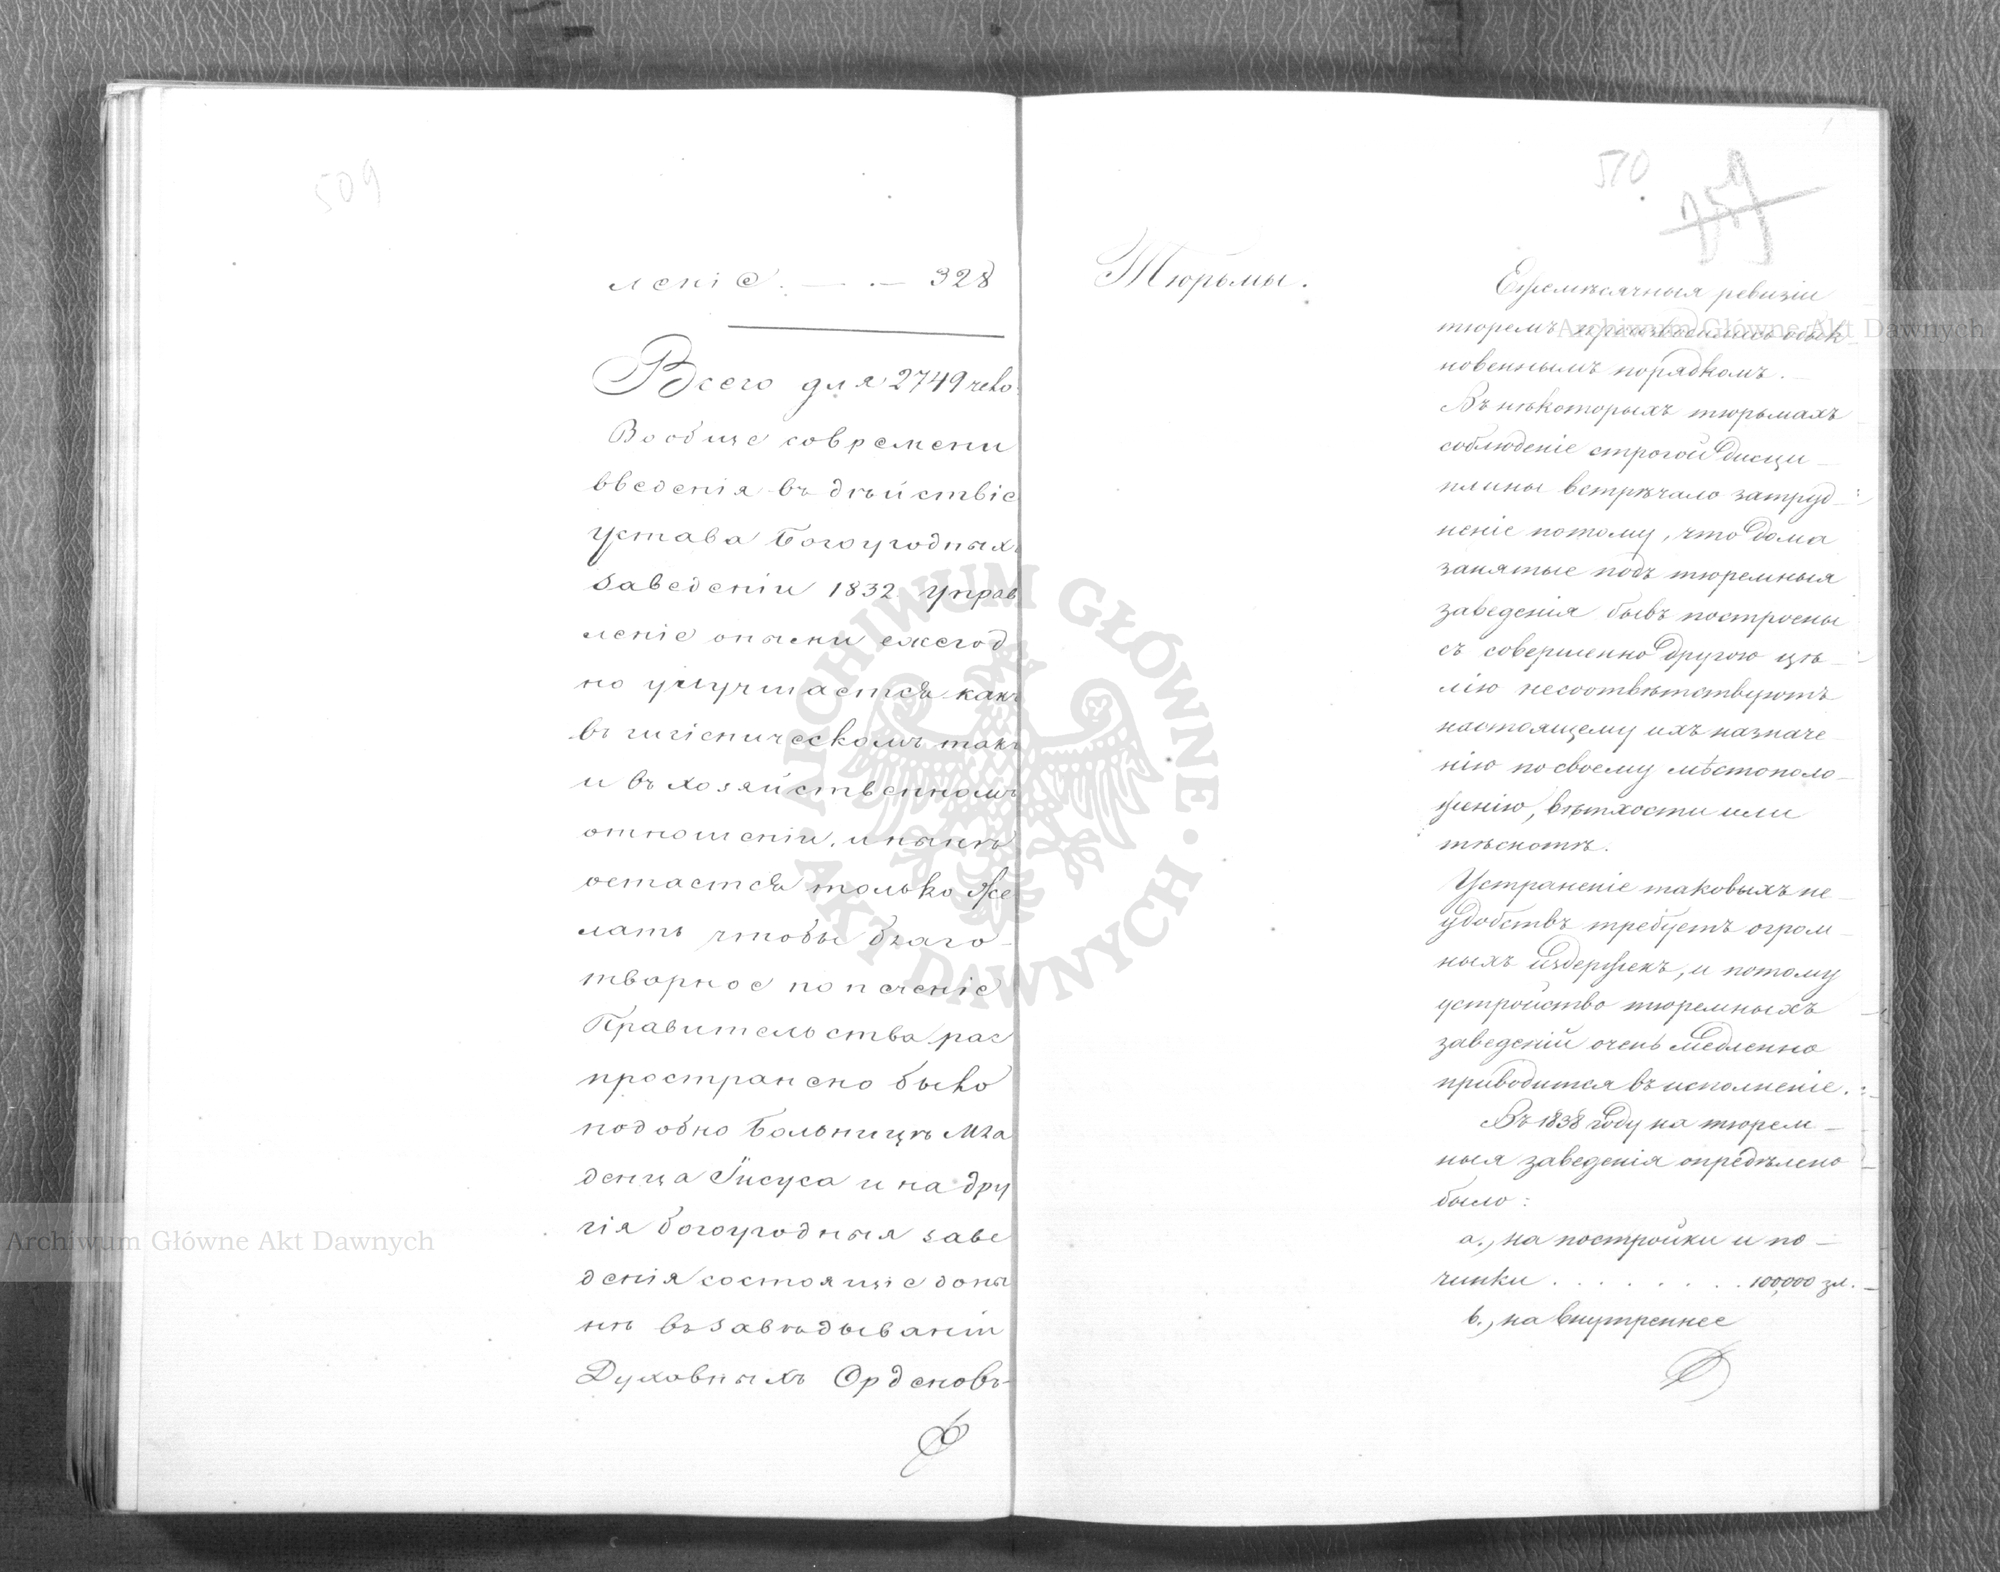 509
леніе. — . — 328
Всего для 2749 чело
Вообще современи
введенія въ дѣйствіе
устава Богоугодныхъ
заведеніи 1832 управ
леніе опыми ежегод
но улучшается какъ
въ гигіеническомъ такъ
и въ хозяйственномъ
отношеніи, и нынѣ
остается только же
лать чтобы благо-
творное попеченіе
Правительства рас
пространено было
подобно Больницѣ Мла
денца Іисуса и на дру
гія богоугодныя заве
денія состоящіе доны
нѣ въ завѣдываніи
Духовныхъ Орденовъ-
510
259
Тюрьмы.
Ежемѣсячныя ревизіи
тюремъ производились обык
новеннымъ порядкомъ. —
Въ нѣкоторыхъ тюрьмахъ
соблюденіе строгой дисци —
плины встрѣчало затруд —
неніе потому, что дома
занятые подъ тюремныя
заведенія бывъ построены
съ совершенно другою цѣ —
лію несоотвѣтствуютъ
настоящему ихъ назначе
нію по своему мѣстополо —
женію, вѣтхости или
тѣснотѣ.
Устраненіе таковыхъ не —
удобствъ требуетъ огром —
ныхъ издержекъ, и потому
устройство тюремныхъ
заведеній очень медленно
приводится въ исполненіе.
Въ 1838 году на тюрем —
ныя заведенія опредѣлено
было:
а., на постройки и по —
чинки . . . . . . . 100,000 зл.
b., на внутреннее
Archiwum Główne Akt Dawnych
Archiwum Główne Akt Dawnych
ARCHIWUM GŁÓWNE · AKT DAWNYCH ·